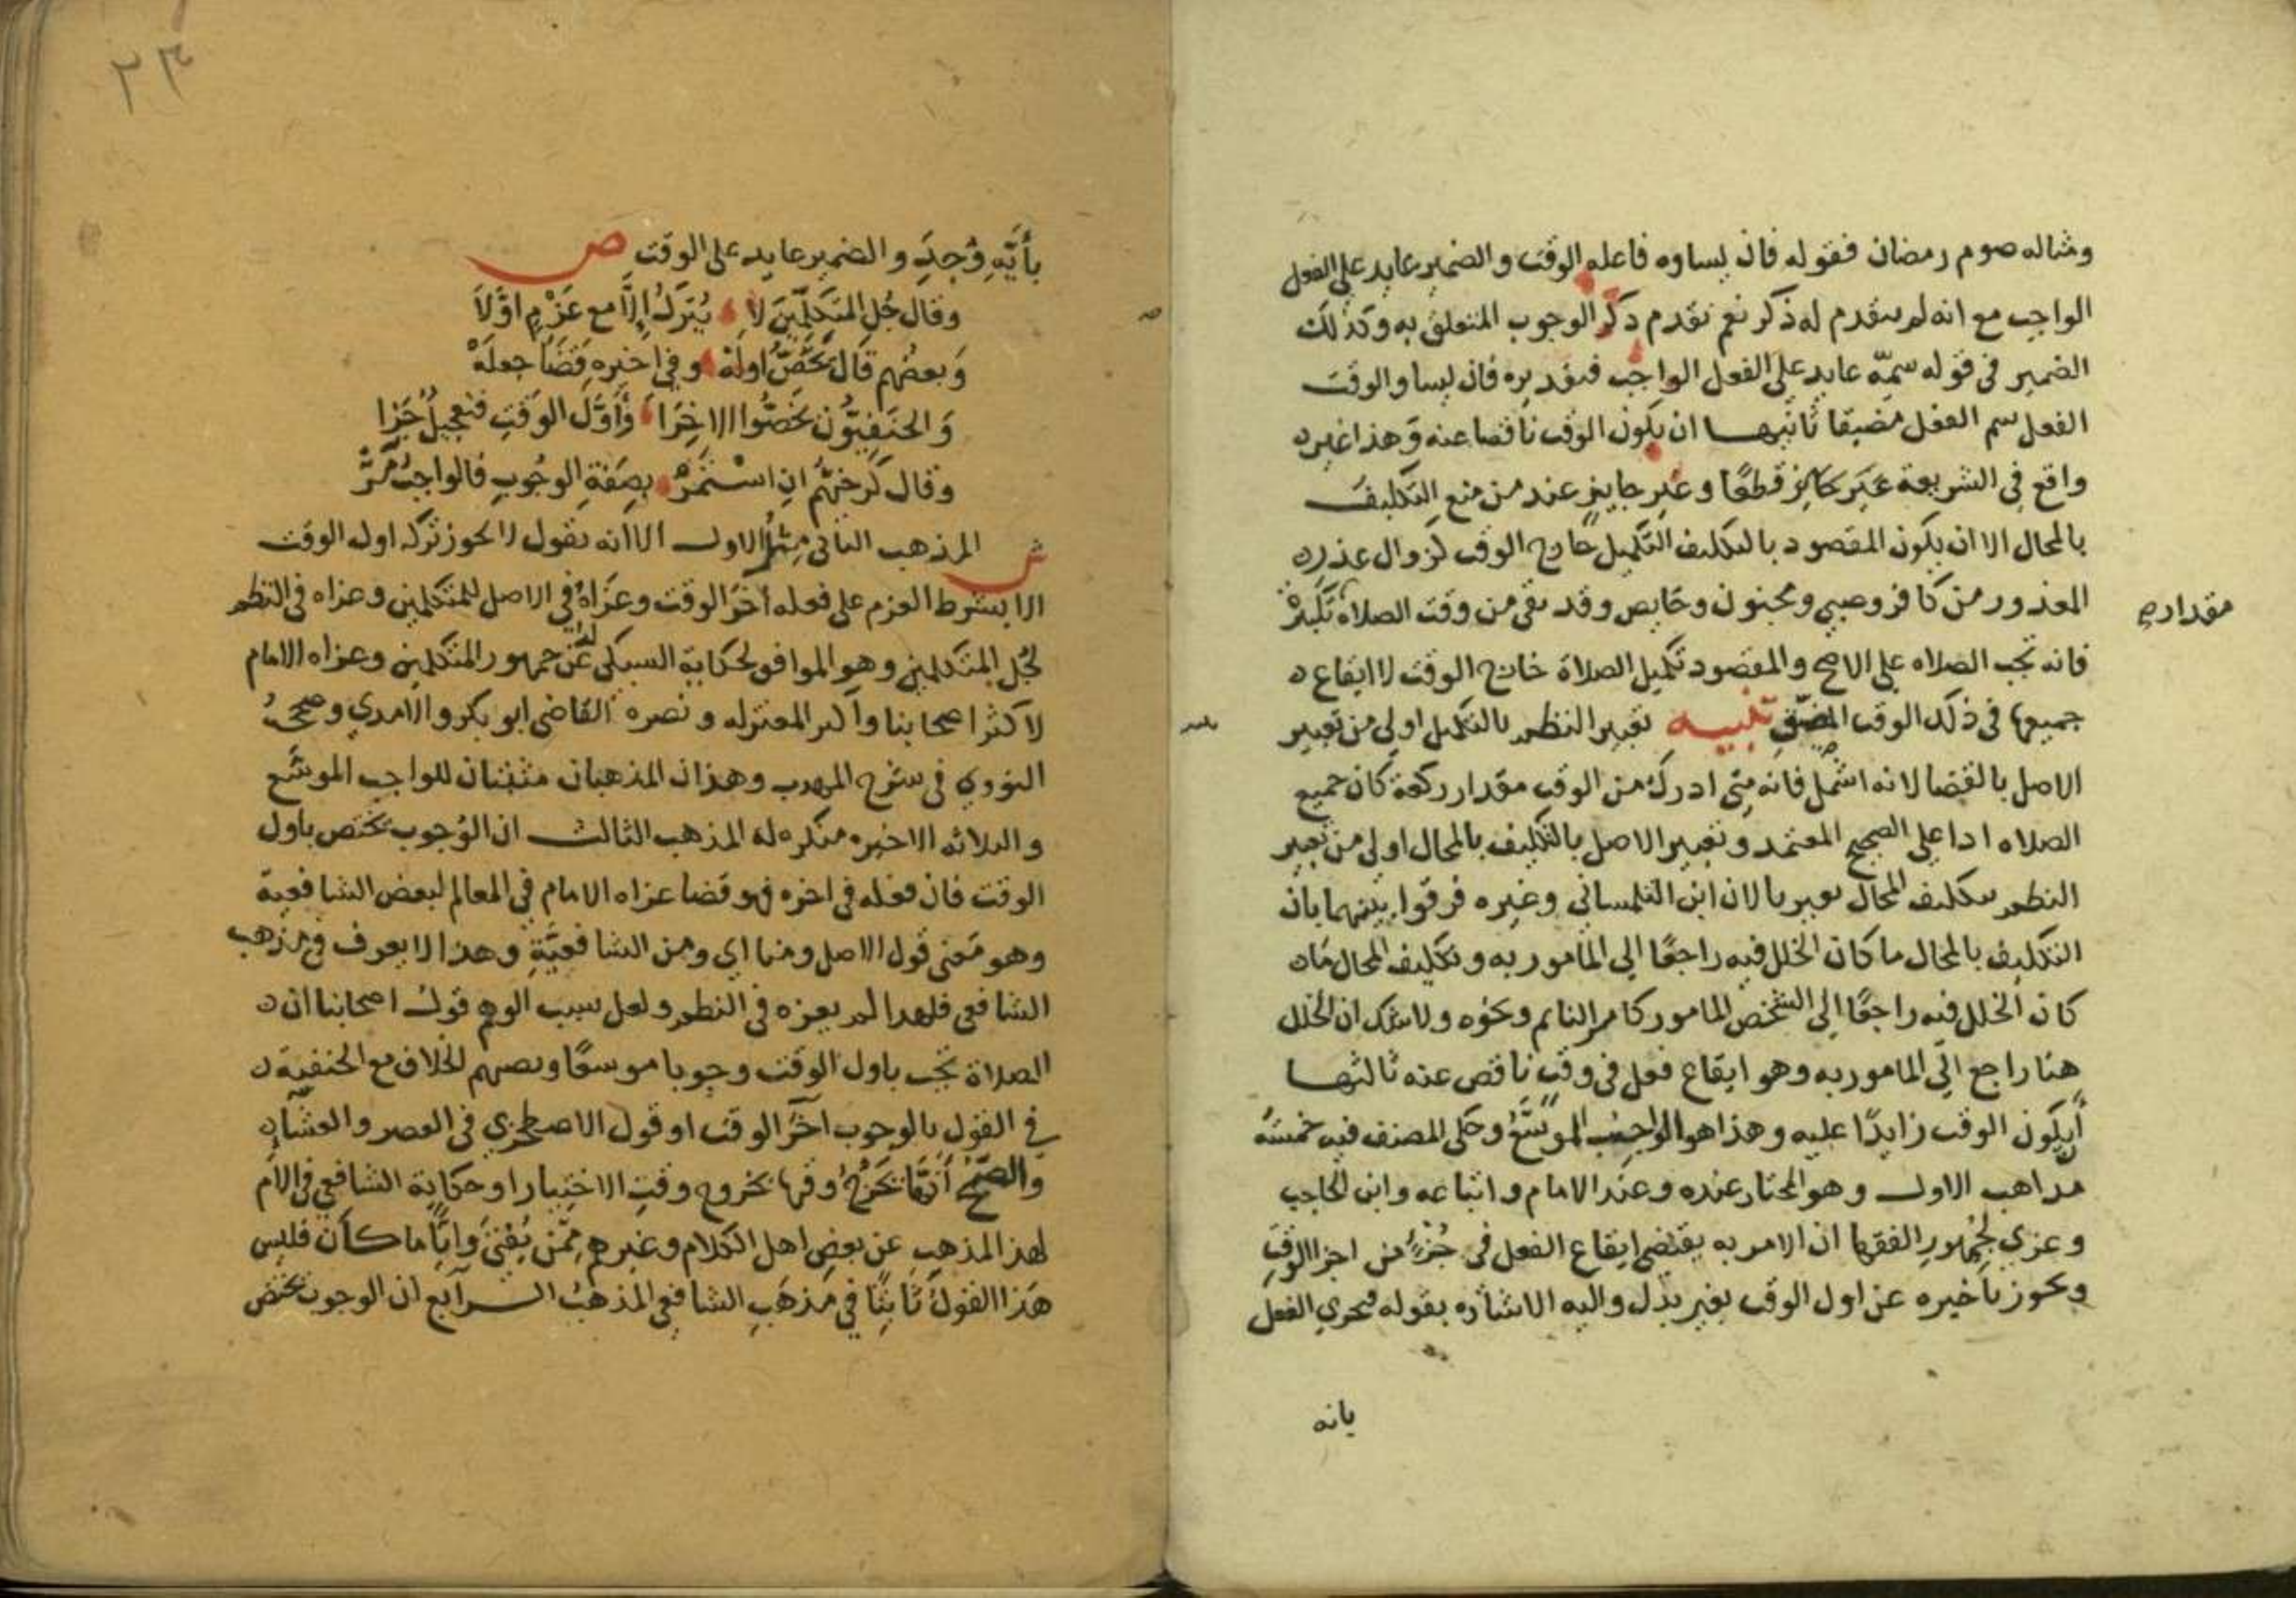 ومثاله صوم رمضان فقوله فان يساوه فاعله الوقت والضمير عايد على الفعل
الواجب مع انه لم يتقدم له ذكر نعم تقدم ذكر الوجوب المتعلق به وكذلك
الضمير في قوله سمه عايد على الفعل الواجب فتقديره فان يساو الوقت
الفعل سم الفعل مضيقا ثانيها ان يكون الوقت ناقصا عنه وهذا غير
واقع في الشريعة غير جائز قطعا وغير جايز عند من منع التكليف
بالمحال الا ان يكون المقصود بالتكليف التكميل خارج الوقت لزوال عذر
المعذور من كافر وصبي ومجنون وحايض وقد بقي من وقت الصلاة تكبيرة
مقدار
فانه تجب الصلاه على الاصح والمقصود تكميل الصلاة خارج الوقت لا ايقاع
جميعها في ذلك الوقت المضيق تنبيه تعبير النظم بالتكميل اولى من تعبير
الاصل بالقضا لانه اشمل فانه متى ادرك من الوقت مقدار ركعة كان جميع
الصلاه ادا على الصحيح المعتمد وتعبير الاصل بالتكليف بالمحال اولى من تعبير
النظم بتكليف المحال لان ابن التلمساني وغيره فرقوا بينهما بان
التكليف بالمحال ما كان الخلل فيه راجعا الى المامور به وتكليف المحال ما
كان الخلل فيه راجعا الى الشخص المامور كامر النايم ونحوه ولا شك ان الخلل
هنا راجع الى المامور به وهو ايقاع فعل في وقت ناقص عنه ثالثها
ان يكون الوقت زايدا عليه وهذا هو الواجب الموسع وحكى المصنف فيه خمسة
مذاهب الاول وهو المختار عنده وعند الامام واتباعه وابن الحاجب
وعزي لجمهور الفقها ان الامر به يقتضي ايقاع الفعل في جزء من اجزا الوقت
ويجوز تاخيره عن اول الوقت بغير بدل واليه الاشاره بقوله فجري الفعل
بانه
٢٣
بأيه وجد والضمير عايد على الوقت ص
وقال جل المتكلمين لا يترك الا مع عزم اولا
وبعضهم قال تخص اوله وفي اخيره قضا جعله
والحنفيون تخصوا الاخرا واول الوقت فتعجيل جزا
وقال كرخيهم ان استمر بصفة الوجوب فالواجب مر
ش المذهب الثاني مثل الاول الا انه يقول لا يجوز تركه اول الوقت
الا بشرط العزم على فعله آخر الوقت وعزاه في الاصل للمتكلمين وعزاه في النظم
لجل المتكلمين وهو الموافق لحكاية السبكي له عن جمهور المتكلمين وعزاه الامام
لاكثر اصحابنا واكثر المعتزله ونصره القاضي ابو بكر والآمدي وصححه
النووي في شرح المهذب وهذان المذهبان مثبتان للواجب الموسع
والثلاثه الاخيره منكره له المذهب الثالث ان الوجوب يختص باول
الوقت فان فعله في اخره فهو قضا عزاه الامام في المعالم لبعض الشافعية
وهو معنى قول الاصل ومنا اي ومن الشافعية وهذا لا يعرف في مذهب
الشافعي فلهذا لم يعزه في النظم ولعل سبب الوهم قول اصحابنا ان
الصلاة تجب باول الوقت وجوبا موسعا ونصبهم الخلاف مع الحنفية
في القول بالوجوب آخر الوقت او قول الاصطخري في العصر والعشا
والصبح انها يخرج وقتها بخروج وقت الاختيار او حكاية الشافعي في الام
لهذا المذهب عن بعض اهل الكلام وغيرهم ممن يفتي وايا ما كان فليس
هذا القول ثابتا في مذهب الشافعي المذهب الرابع ان الوجوب يختص